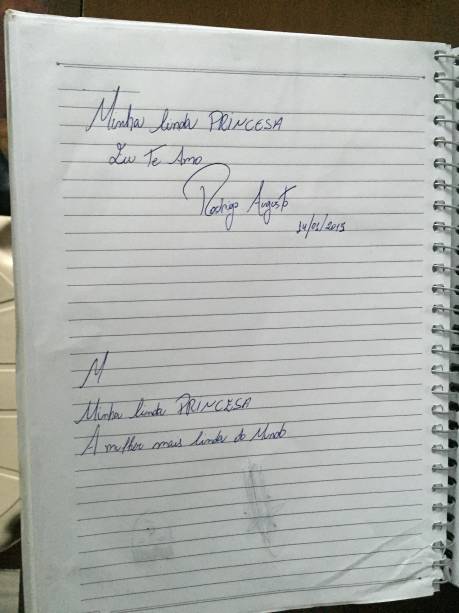 Minha linda PRINCESA
Eu Te Amo
Rodrigo Augusto
14/01/2015
M
Minha linda PRINCESA
A mulher mais linda do Mundo